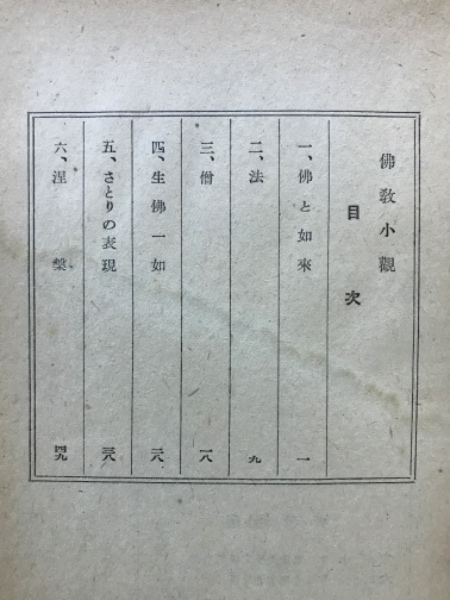 佛敎小觀
目次
一、佛と如來 一
二、法 九
三、僧 一八
四、生佛一如 二八
五、さとりの表現 三八
六、涅槃 四九